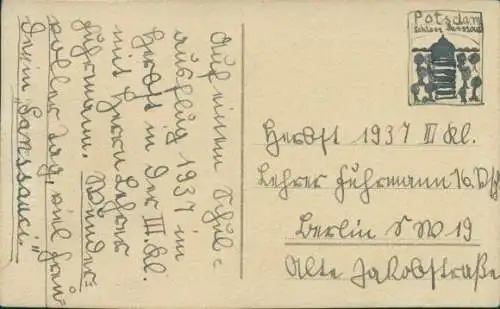 Auf einem Schul-
ausflug 1937 im
Herbst in der III. Kl.
mit Herrn Lehrer
Fuhrmann. Wunder-
voller Tag, viel Freu-
de in „Sanssouci“.
Potsdam
Schloss Sanssouci
Herbst 1937 III Kl.
Lehrer Fuhrmann 16.
Berlin SW 19
Alte Jakobstraße